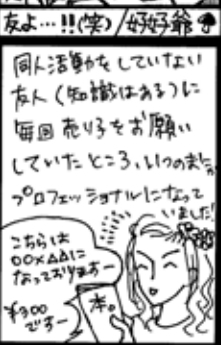 友よ…!!(笑)/好好爺
同人活動をしていない
友人(知識はある)に
毎回売り子をお願い
していたところ、いつのまにか
プロフェッショナルになって
いました!
こちらは
〇〇×△△に
なっておりますー
¥300
ですー
本。